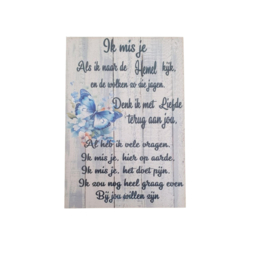 Ik mis je
Als ik naar de Hemel kijk,
en de wolken zo zie jagen.
Denk ik met Liefde
terug aan jou.
Al heb ik vele vragen.
Ik mis je, hier op aarde.
Ik mis je, het doet pijn.
Ik zou nog heel graag even
Bij jou willen zijn